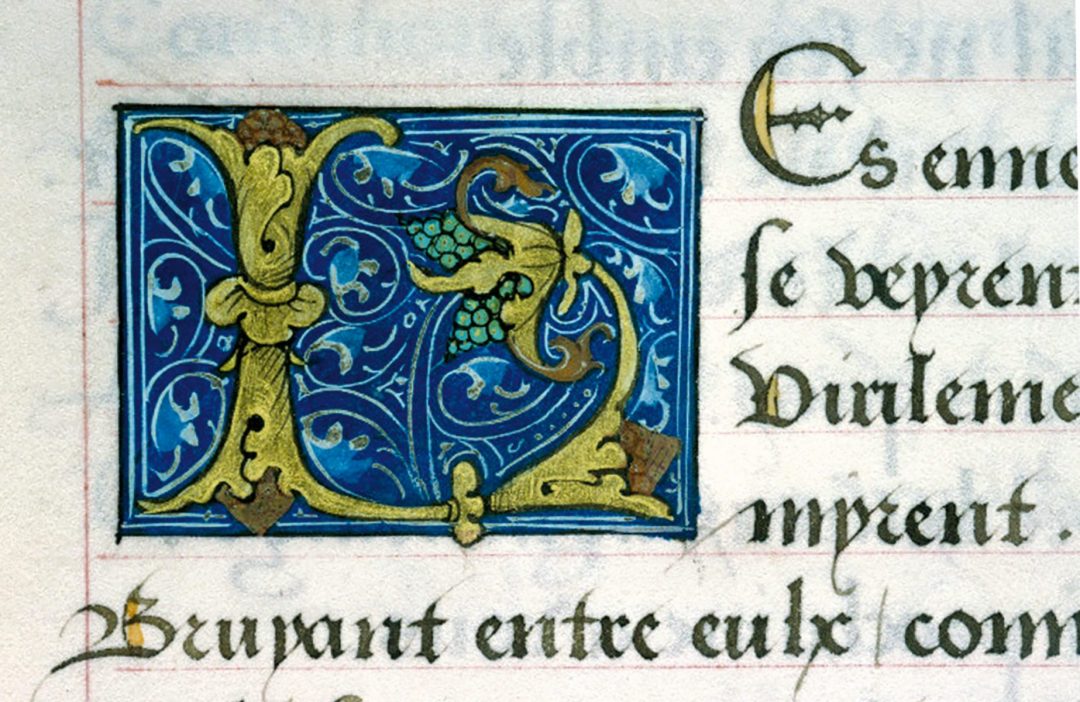 LEs enne
se veyrent
Virileme
myrent .
Bruyant entre eulx / comm